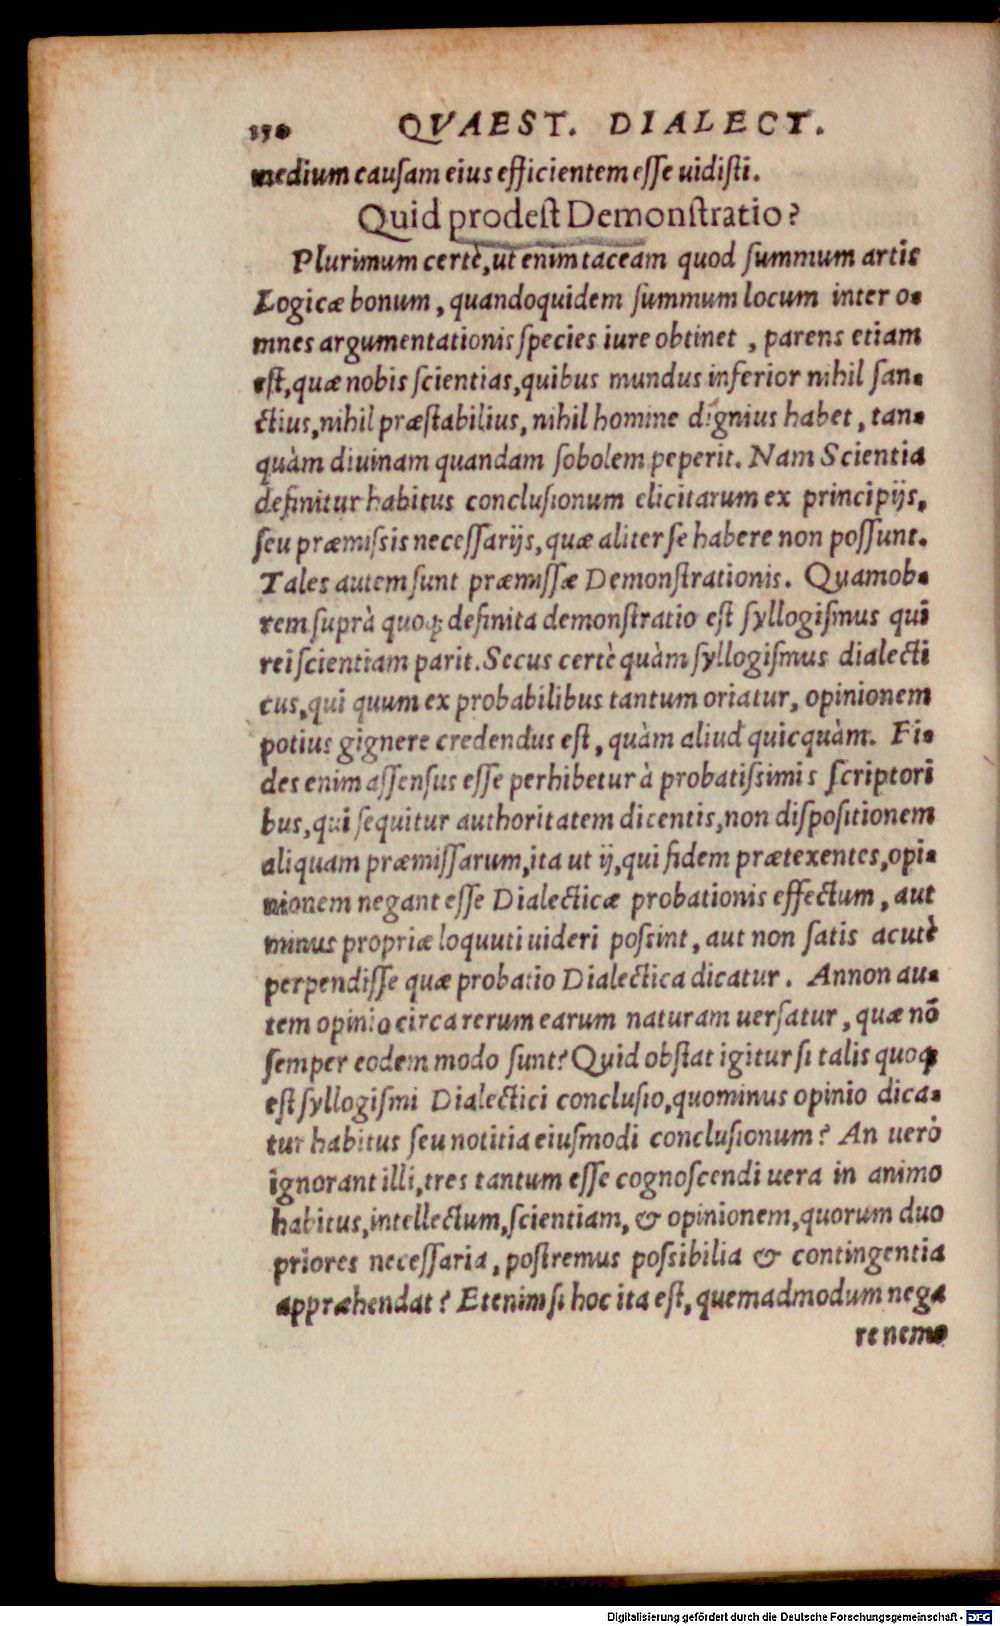 150 QVAEST. DIALECT.
medium causam eius efficientem esse uidisti.
Quid prodest Demonstratio?
Plurimum certè, ut enim taceam quod summum artis
Logicæ bonum, quandoquidem summum locum inter o-
mnes argumentationis species iure obtinet, parens etiam
est, quæ nobis scientias, quibus mundus inferior nihil san-
ctius, nihil præstabilius, nihil homine dignius habet, tan-
quàm diuinam quandam sobolem peperit. Nam Scientia
definitur habitus conclusionum elicitarum ex principijs,
seu præmissis necessarijs, quæ aliter se habere non possunt.
Tales autem sunt præmissæ Demonstrationis. Quamob-
rem suprà quoq; definita demonstratio est syllogismus qui
rei scientiam parit. Secus certè quàm syllogismus dialecti
cus, qui quum ex probabilibus tantum oriatur, opinionem
potius gignere credendus est, quàm aliud quicquàm. Fi-
des enim assensus esse perhibetur à probatissimis scriptori
bus, qui sequitur authoritatem dicentis, non dispositionem
aliquam præmissarum, ita ut ij, qui fidem prætexentes, opi-
nionem negant esse Dialecticæ probationis effectum, aut
minus propriæ loquuti uideri possint, aut non satis acutè
perpendisse quæ probatio Dialectica dicatur. Annon au-
tem opinio circa rerum earum naturam uersatur, quæ nō
semper eodem modo sunt? Quid obstat igitur si talis quoq;
est syllogismi Dialectici conclusio, quominus opinio dica-
tur habitus seu notitia eiusmodi conclusionum? An uerò
ignorant illi, tres tantum esse cognoscendi uera in animo
habitus, intellectum, scientiam, & opinionem, quorum duo
priores necessaria, postremus possibilia & contingentia
appræhendat? Etenim si hoc ita est, quemadmodum nega
re nemo
Digitalisierung gefördert durch die Deutsche Forschungsgemeinschaft - DFG